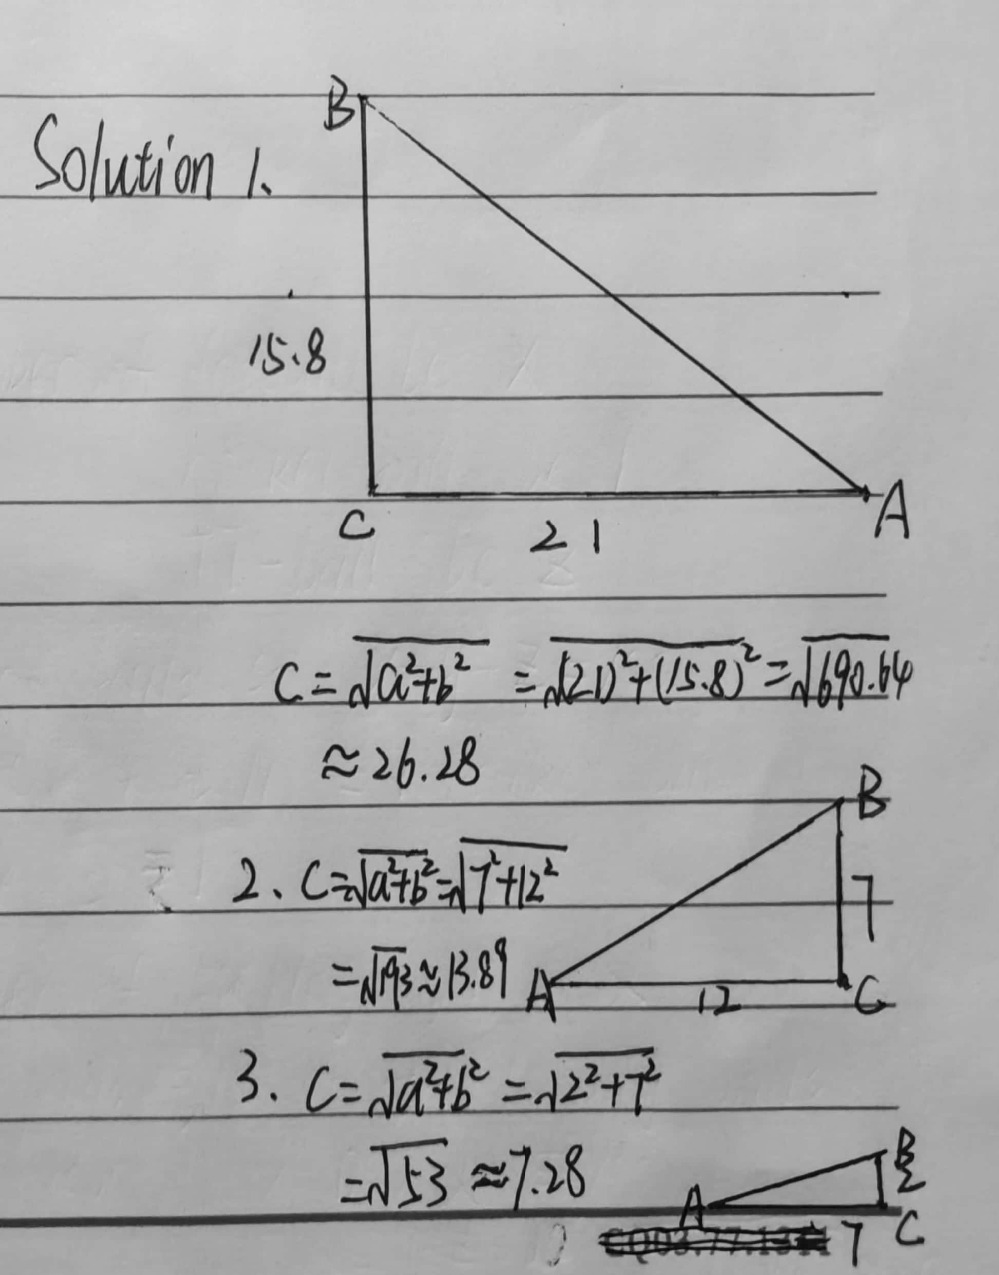 B
Solution 1.
15.8
C
21
A
C = √a²+b² = √(21)²+(15.8)² = √690.64
≈ 26.28
B
2. C=√a²+b²=√7²+12²
7
=√193≈13.89
A
12
C
3. C=√a²+b² =√2²+7²
B
=√53 ≈7.28
2
A
C
7